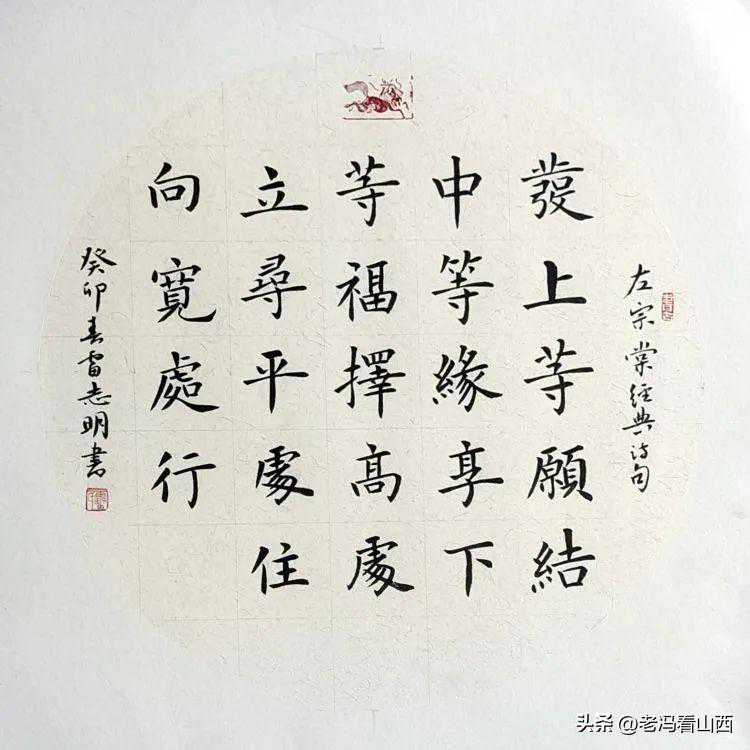 左宗棠經典詩句
發上等願結
中等緣享下
等福擇高處
立尋平處住
向寬處行
癸卯春雷志明書
头条 @老冯看山西